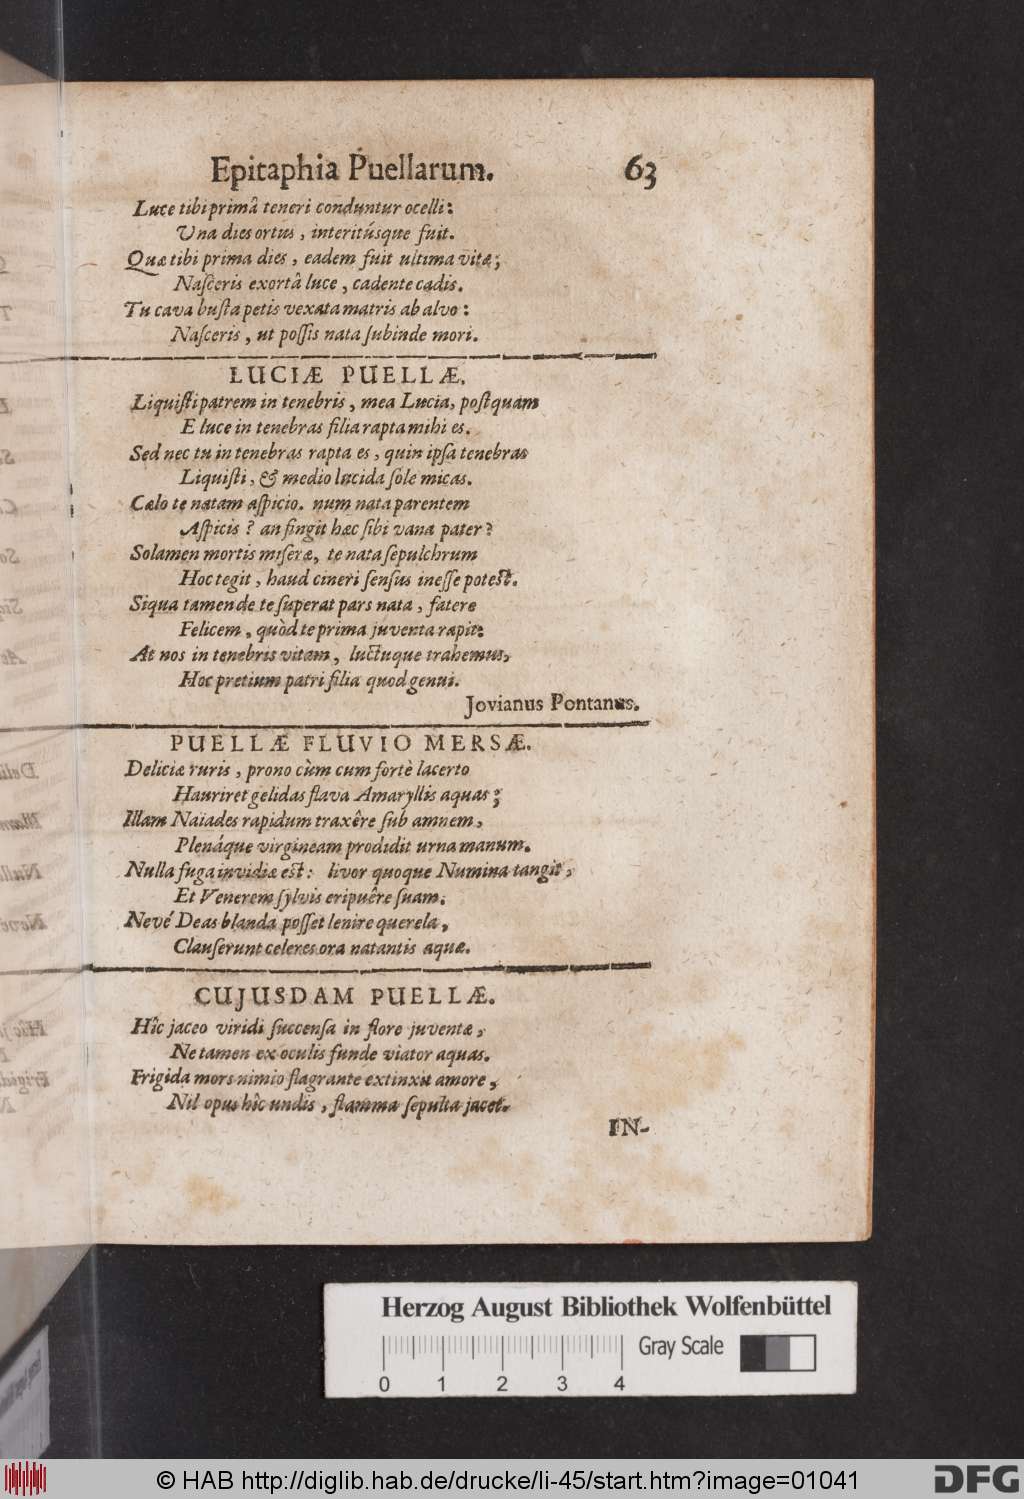 Epitaphia Puellarum. 63
Luce tibi primâ teneri conduntur ocelli:
Una dies ortus, interitúsque fuit.
Quæ tibi prima dies, eadem fuit ultima vitæ;
Naſceris exortâ luce, cadente cadis.
Tu cava buſta petis vexata matris ab alvo:
Naſceris, ut poſſis nata ſubinde mori.
LUCIÆ PUELLÆ.
Liquiſti patrem in tenebris, mea Lucia, poſtquam
E luce in tenebras filia rapta mihi es.
Sed nec tu in tenebras rapta es, quin ipſa tenebras
Liquiſti, & medio lucida ſole micas.
Cælo te natam aſpicio. num nata parentem
Aſpicis? an fingit hæc ſibi vana pater?
Solamen mortis miſeræ, te nata ſepulchrum
Hoc tegit, haud cineri ſenſus ineſſe poteſt.
Siqua tamen de te ſuperat pars nata, fatere
Felicem, quòd te prima juventa rapit:
At nos in tenebris vitam, luctuque trahemus,
Hoc pretium patri filia quod genui.
Jovianus Pontanus.
PUELLÆ FLUVIO MERSÆ.
Deliciæ ruris, prono cùm cum fortè lacerto
Hauriret gelidas flava Amaryllis aquas;
Illam Naiades rapidum traxêre ſub amnem,
Plenáque virgineam prodidit urna manum.
Nulla fuga invidiæ eſt: livor quoque Numina tangit,
Et Venerem ſylvis eripuêre ſuam.
Nevé Deas blanda poſſet lenire querela,
Clauſerunt celeres ora natantis aquæ.
CUJUSDAM PUELLÆ.
Hîc jaceo viridi ſuccenſa in flore juventæ,
Ne tamen ex oculis funde viator aquas.
Frigida mors nimio flagrante extinxit amore,
Nil opus hîc undis, flamma ſepulta jacet.
IN-
Herzog August Bibliothek Wolfenbüttel
Gray Scale
0 1 2 3 4
© HAB http://diglib.hab.de/drucke/li-45/start.htm?image=01041
DFG